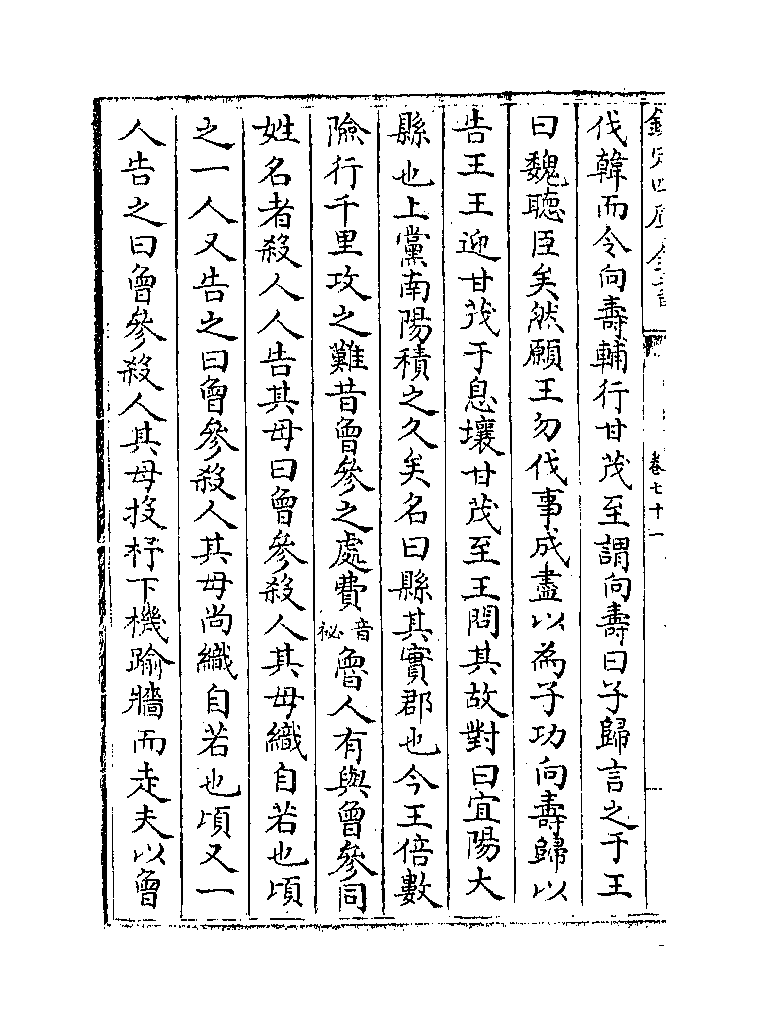 欽定四庫全書
卷七十一
伐韓而令向壽輔行甘茂至謂向壽曰子歸言之于王
曰魏聽臣矣然願王勿伐事成盡以為子功向壽歸以
告王王迎甘茂于息壤甘茂至王問其故對曰宜陽大
縣也上黨南陽積之久矣名曰縣其實郡也今王倍數
險行千里攻之難昔曾參之處費音祕魯人有與曾參同
姓名者殺人人告其母曰曾參殺人其母織自若也頃
之一人又告之曰曾參殺人其母尚織自若也頃又一
人告之曰曾參殺人其母投杼下機踰牆而走夫以曾